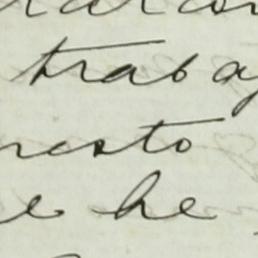 traba
resto
e he